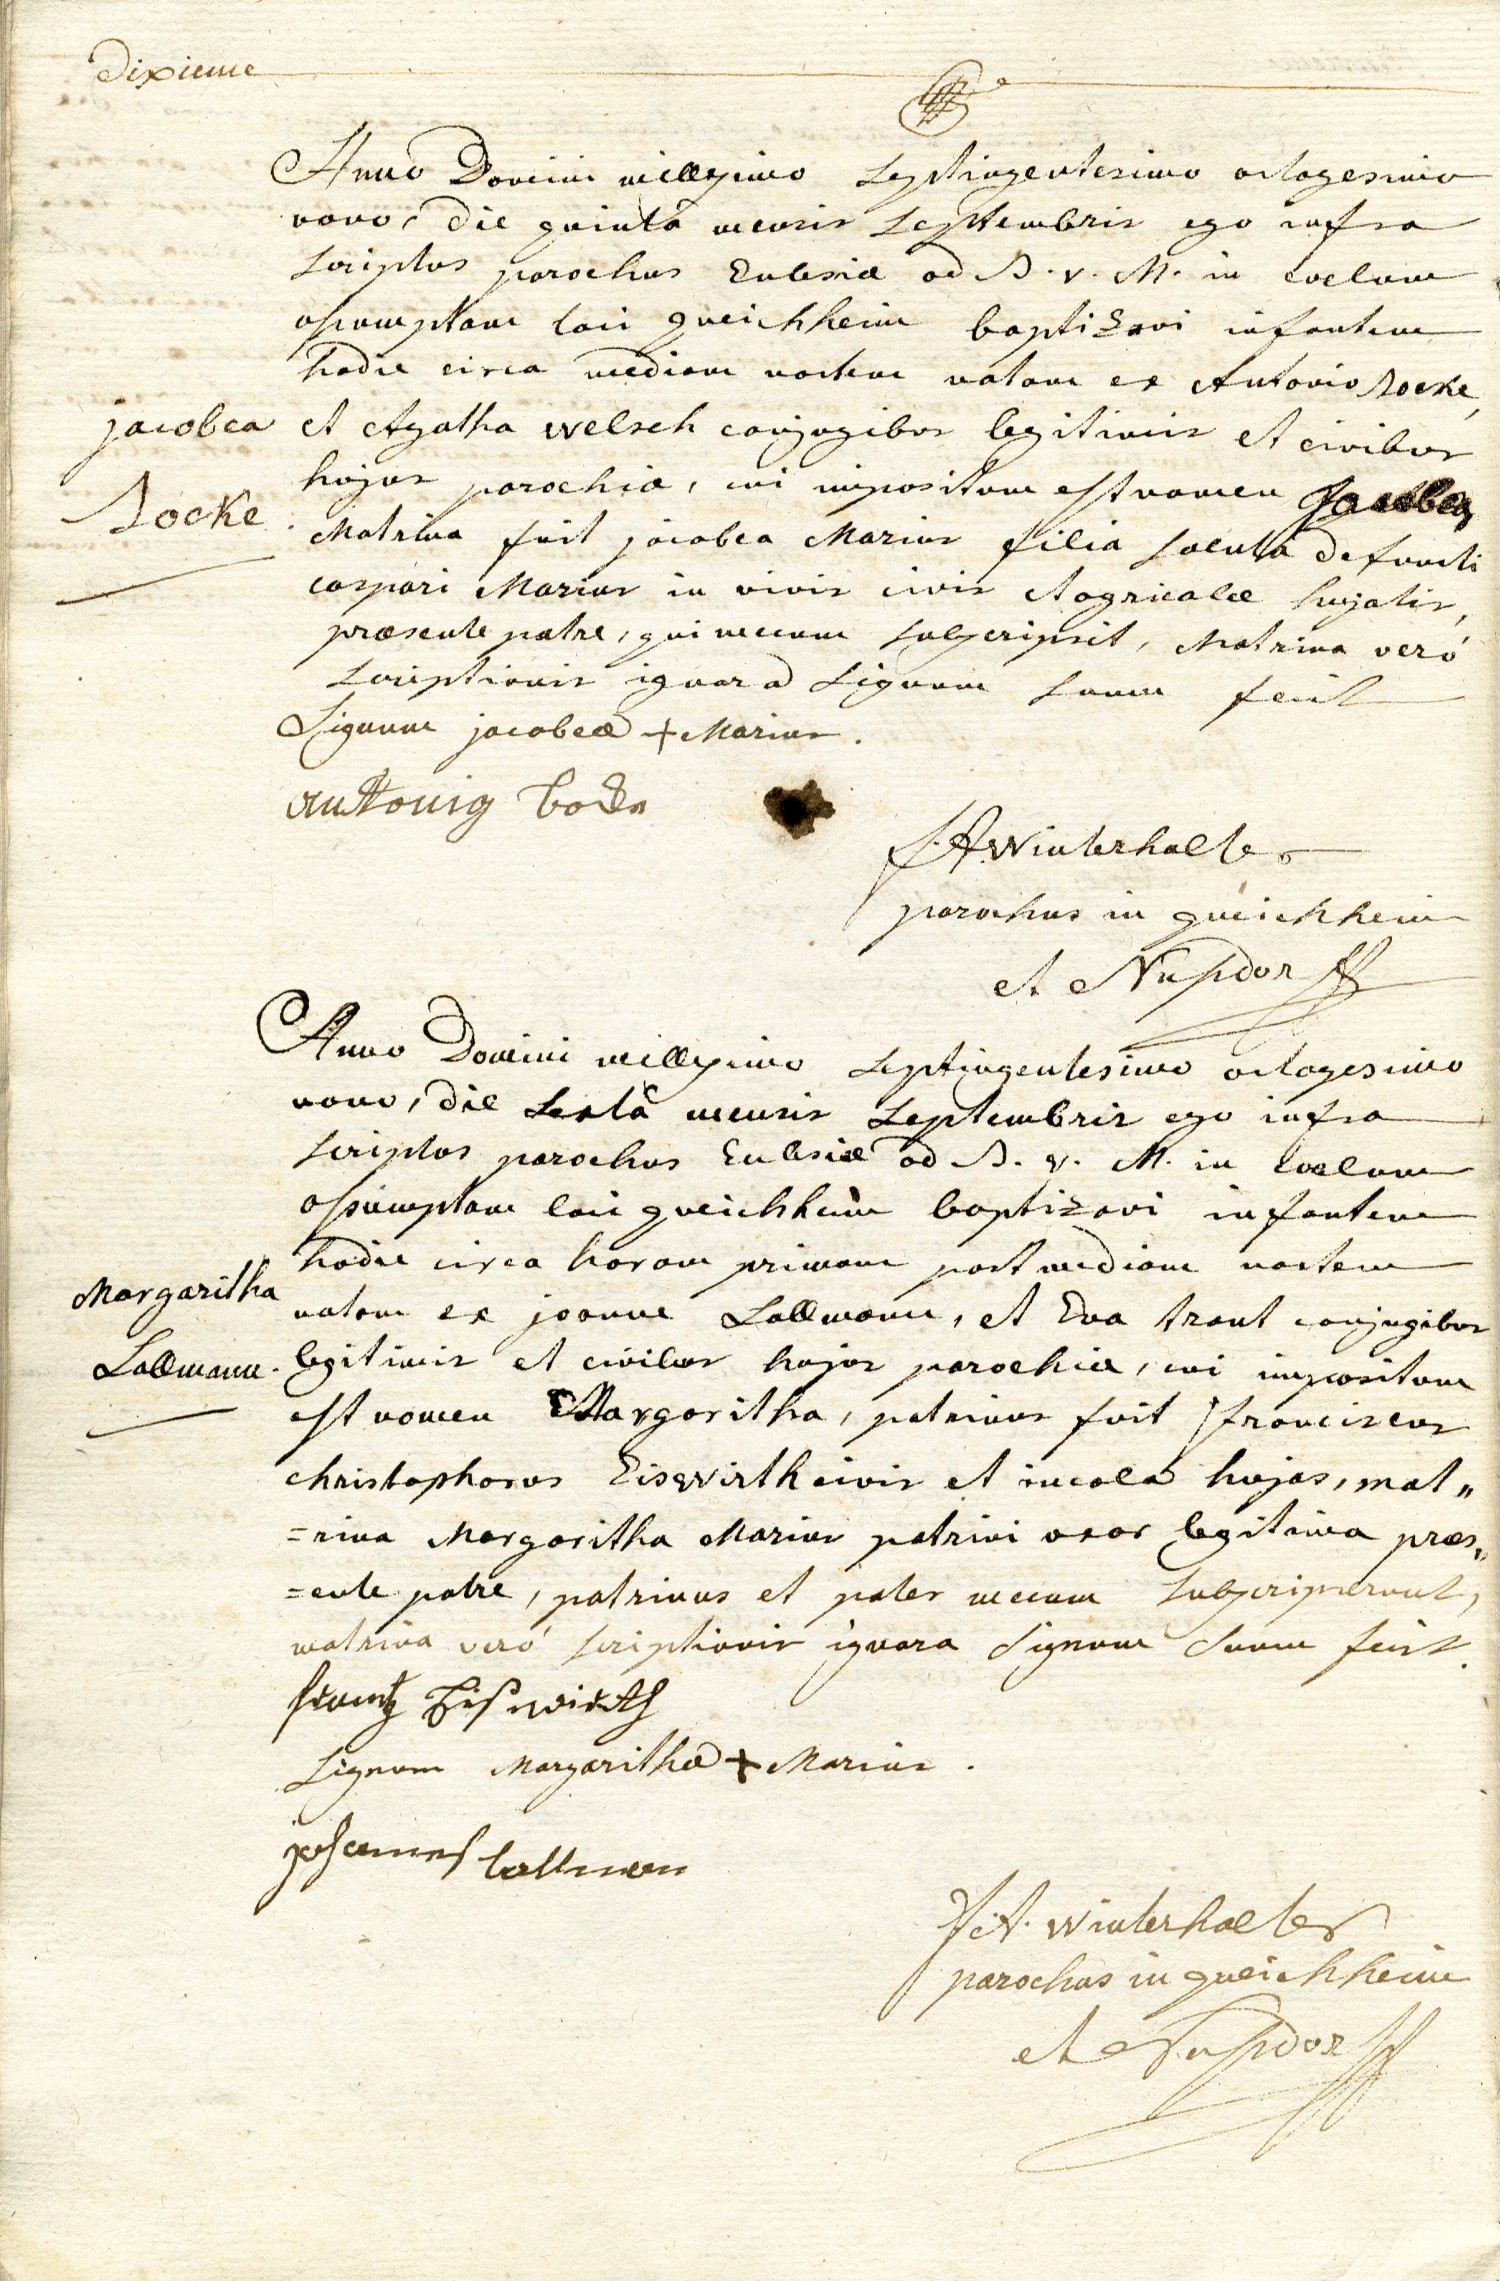 dixieme
Anno Domini millesimo septingentesimo octogesimo
nono, die quintâ mensis septembris ego infra
scriptus parochus Ecclesiæ ad B. v. M. in coelum
assumptam loci queichheim baptizavi infantem
hodie circa mediam noctem natam ex Antonio Bocke,
jacobea
et Agatha welsch conjugibus legitimis et civibus
hujus parochiæ, cui impositum est nomen Jacobea,
Bocke.
Matrina fuit jacobea Marius filia soluta defuncti
caspari Marius in vivis civis et agricolæ hujatis,
præsente patre, qui mecum subscripsit, Matrina veró
scriptionis ignara signum suum fecit
Signum jacobeæ + Marius.
anttonig bock
F A Winterhalter
parochus in queichheim
et Nussdorff
Anno Domini millesimo septingentesimo octogesimo
nono, die sextâ mensis septembris ego infra
scriptus parochus Ecclesiæ ad B. v. M. in coelum
assumptam loci queichheim baptizavi infantem
hodie circa horam primam post mediam noctem
Margaritha
natam ex joanne Lallmann, et Eva traut conjugibus
Lallmann.
legitimis et civibus hujus parochiæ, cui impositum
est nomen Margaritha, patrinus fuit franciscus
christophorus Eiswirth civis et incola hujas, mat„
=rina Margaritha Marius patrini uxor legitima præs„
=ente patre, patrinus et pater mecum subscripserunt,
matrina veró scriptionis ignara signum suum fecit.
frantz Eißwirth
Signum Margarithæ + Marius.
johannes lallman
F. A. Winterhalter
parochus in queichheim
et Nussdorff